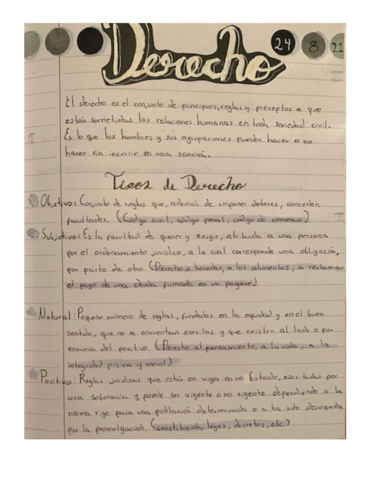 Derecho 24 8 21
El derecho es el conjunto de principios, reglas y preceptos a que
están sometidas las relaciones humanas en toda sociedad civil.
Es lo que los hombres y sus agrupaciones pueden hacer o no
hacer sin incurrir en una sanción.
Tipos de Derecho
Objetivo: Conjunto de reglas que, además de imponer deberes, conceden
facultades. (Código civil, código penal, código de comercio)
Subjetivo: Es la facultad de querer y exigir, atribuida a una persona
por el ordenamiento jurídico, a la cual corresponde una obligación,
por parte de otro. (Derecho a heredar, a los alimentos, a reclamar
el pago de una deuda firmada en un pagaré)
Natural: Pequeño número de reglas, fundadas en la equidad y en el buen
sentido, que no se encuentran escritas y que existen al lado o por
encima del positivo. (Derecho al pensamiento, a la vida, a la
integridad física y moral)
Positivo: Reglas jurídicas que están en vigor en un Estado,
por
una soberanía y puede ser vigente o no vigente dependiendo si la
norma rige para una población determinada o si ha sido derogada
por la promulgación. (constitución, leyes, decretos, etc)